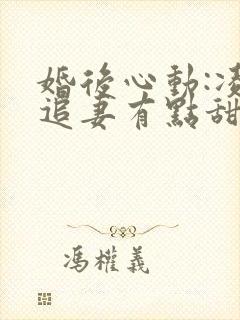 婚後心動:凌
追妻有點甜
馮權義